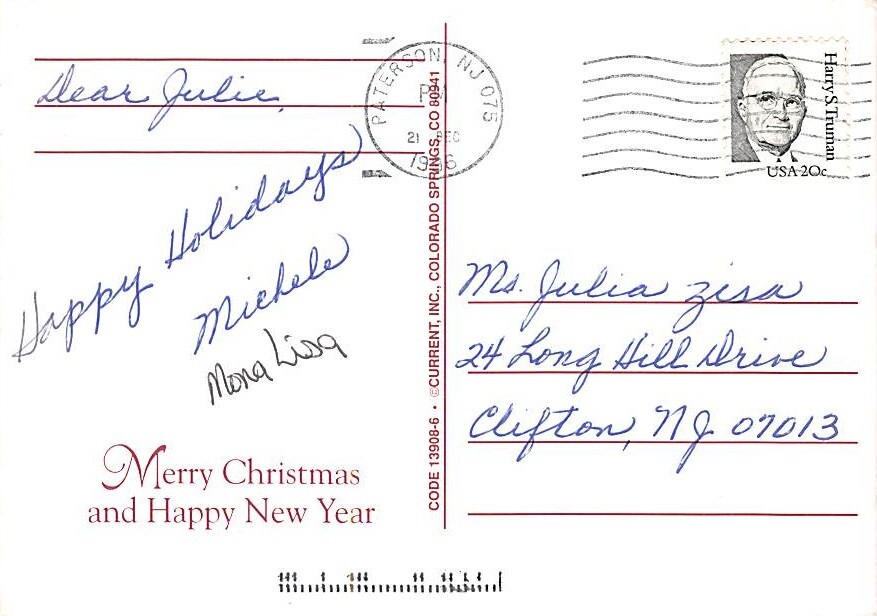 Dear Julie,
Happy Holidays
Michele
Mona Lisa
Merry Christmas
and Happy New Year
CODE 13908-6 • ©CURRENT, INC., COLORADO SPRINGS, CO 80941
PATERSON, NJ 075
PM
21 DEC
1986
Harry S. Truman
USA 20c
Ms. Julia Zisa
24 Long Hill Drive
Clifton, NJ 07013